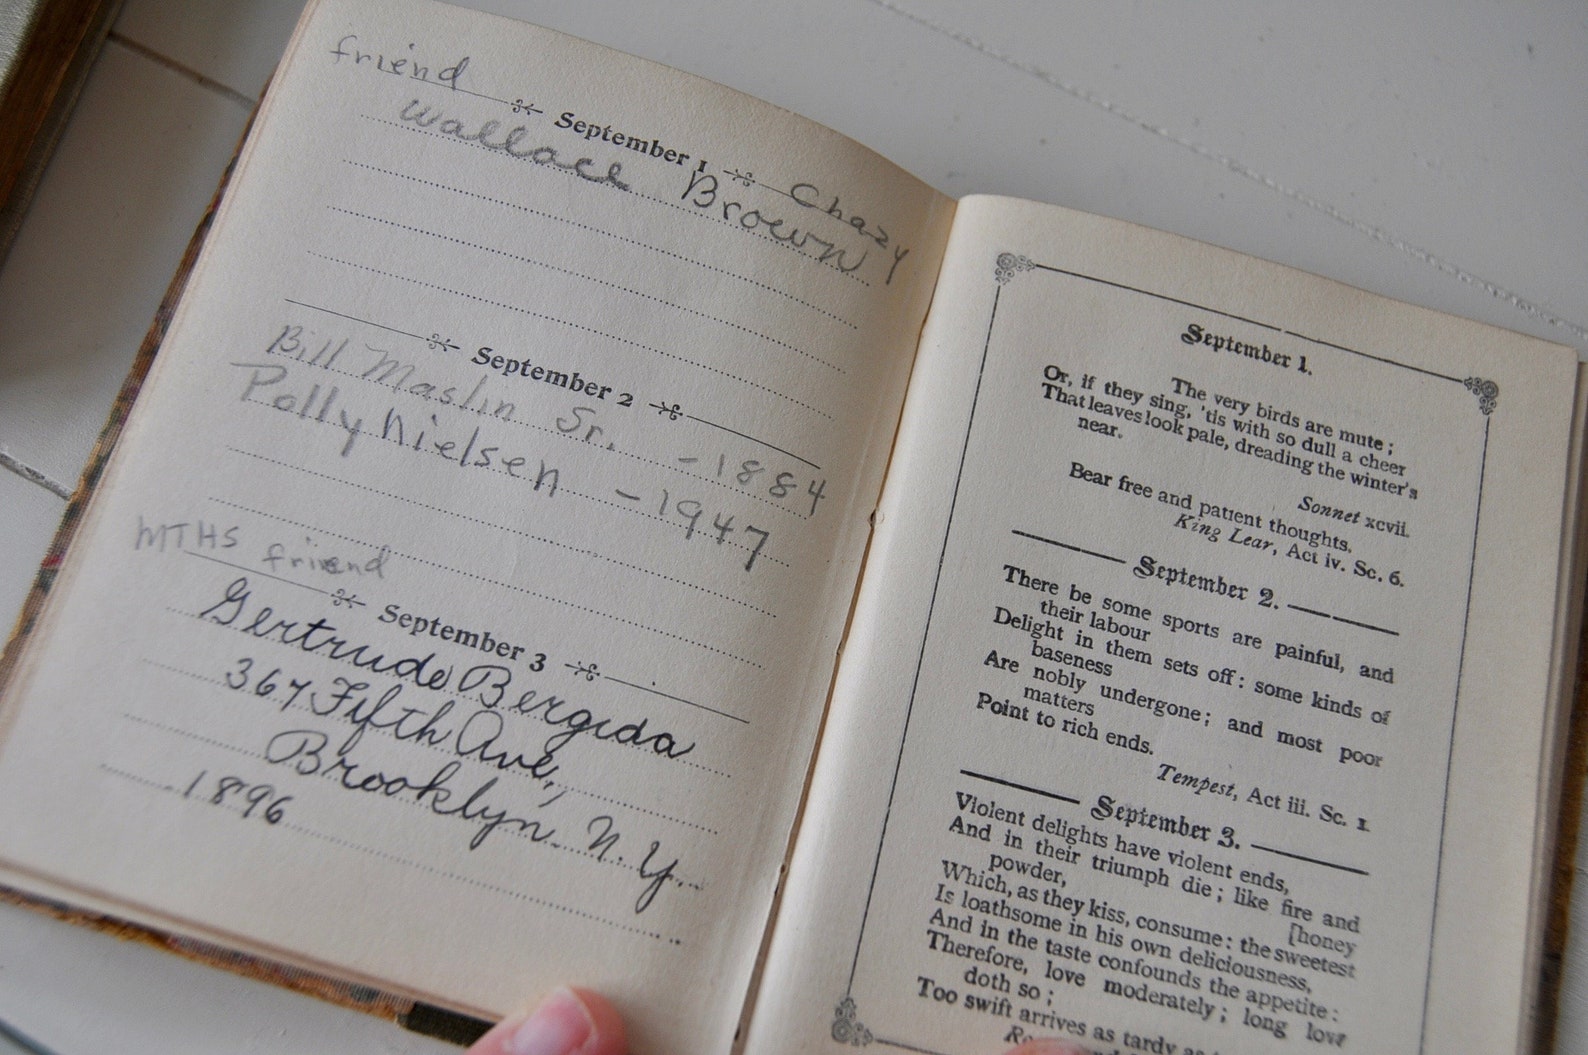 friend
September 1
Chazy
Wallace Brown
September 2
Bill Maslin Sr. - 1884
Polly Nielsen - 1947
MTHS friend
September 3
Gertrude Bergida
367 Fifth Ave.,
Brooklyn. N.Y.
1896
September 1.
The very birds are mute;
Or, if they sing, 'tis with so dull a cheer
That leaves look pale, dreading the winter's
near.
Sonnet xcvii.
Bear free and patient thoughts.
King Lear, Act iv. Sc. 6.
September 2.
There be some sports are painful, and
their labour
Delight in them sets off: some kinds of
baseness
Are nobly undergone; and most poor
matters
Point to rich ends.
Tempest, Act iii. Sc. 1
September 3.
Violent delights have violent ends,
And in their triumph die; like fire and
powder,
Which, as they kiss, consume: the sweetest
[honey
Is loathsome in his own deliciousness,
And in the taste confounds the appetite:
Therefore, love moderately; long love
doth so;
Too swift arrives as tardy as